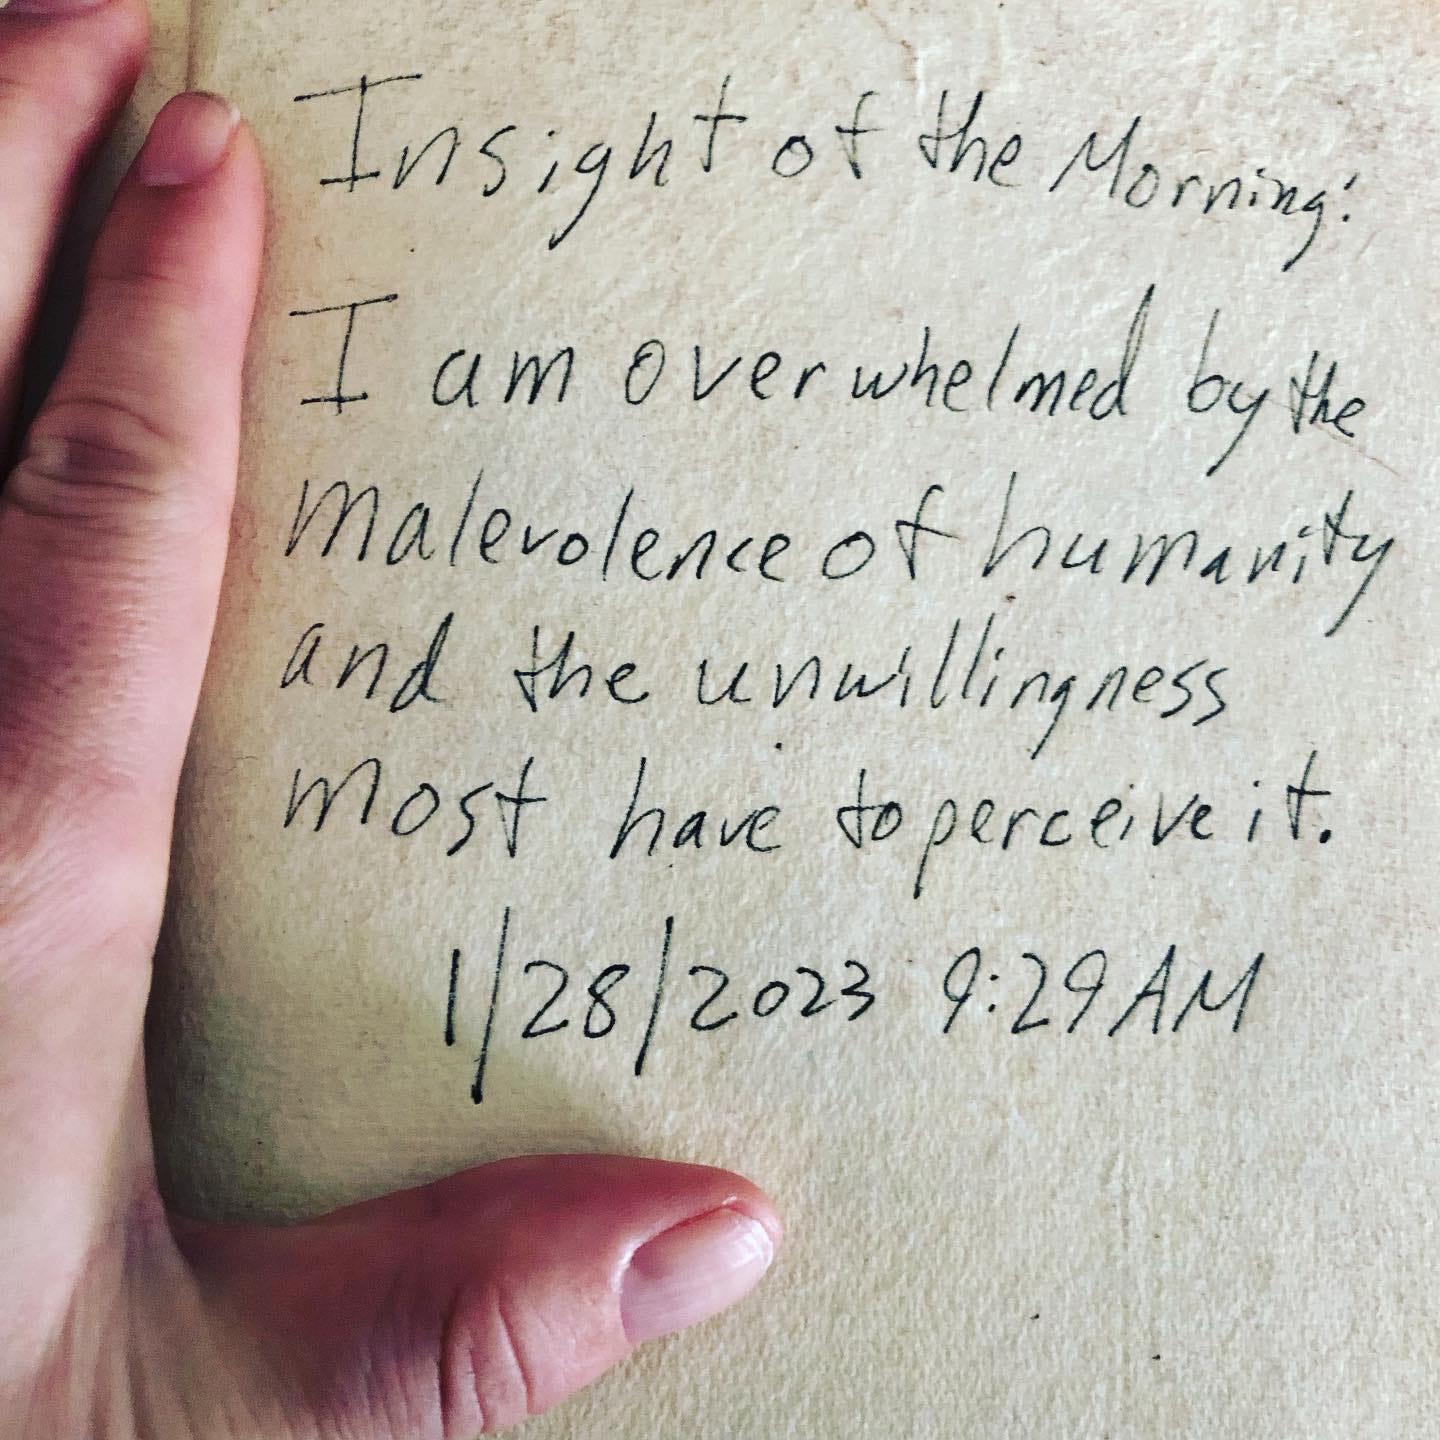 Insight of the Morning:
I am overwhelmed by the
malevolence of humanity
and the unwillingness
most have to perceive it.
1/28/2023 9:29 AM